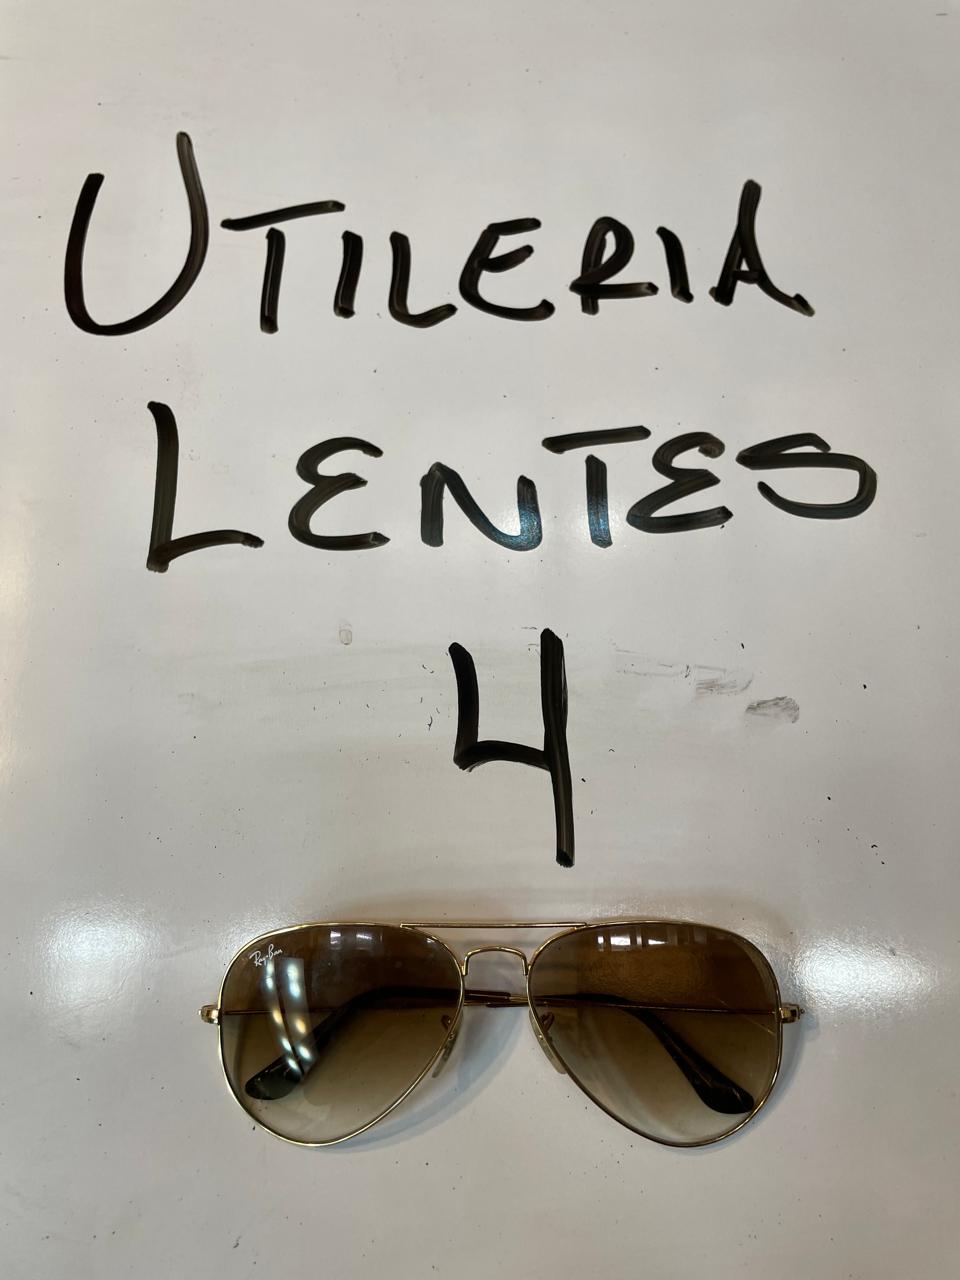 UTILERIA
LENTES
4
Ray-Ban